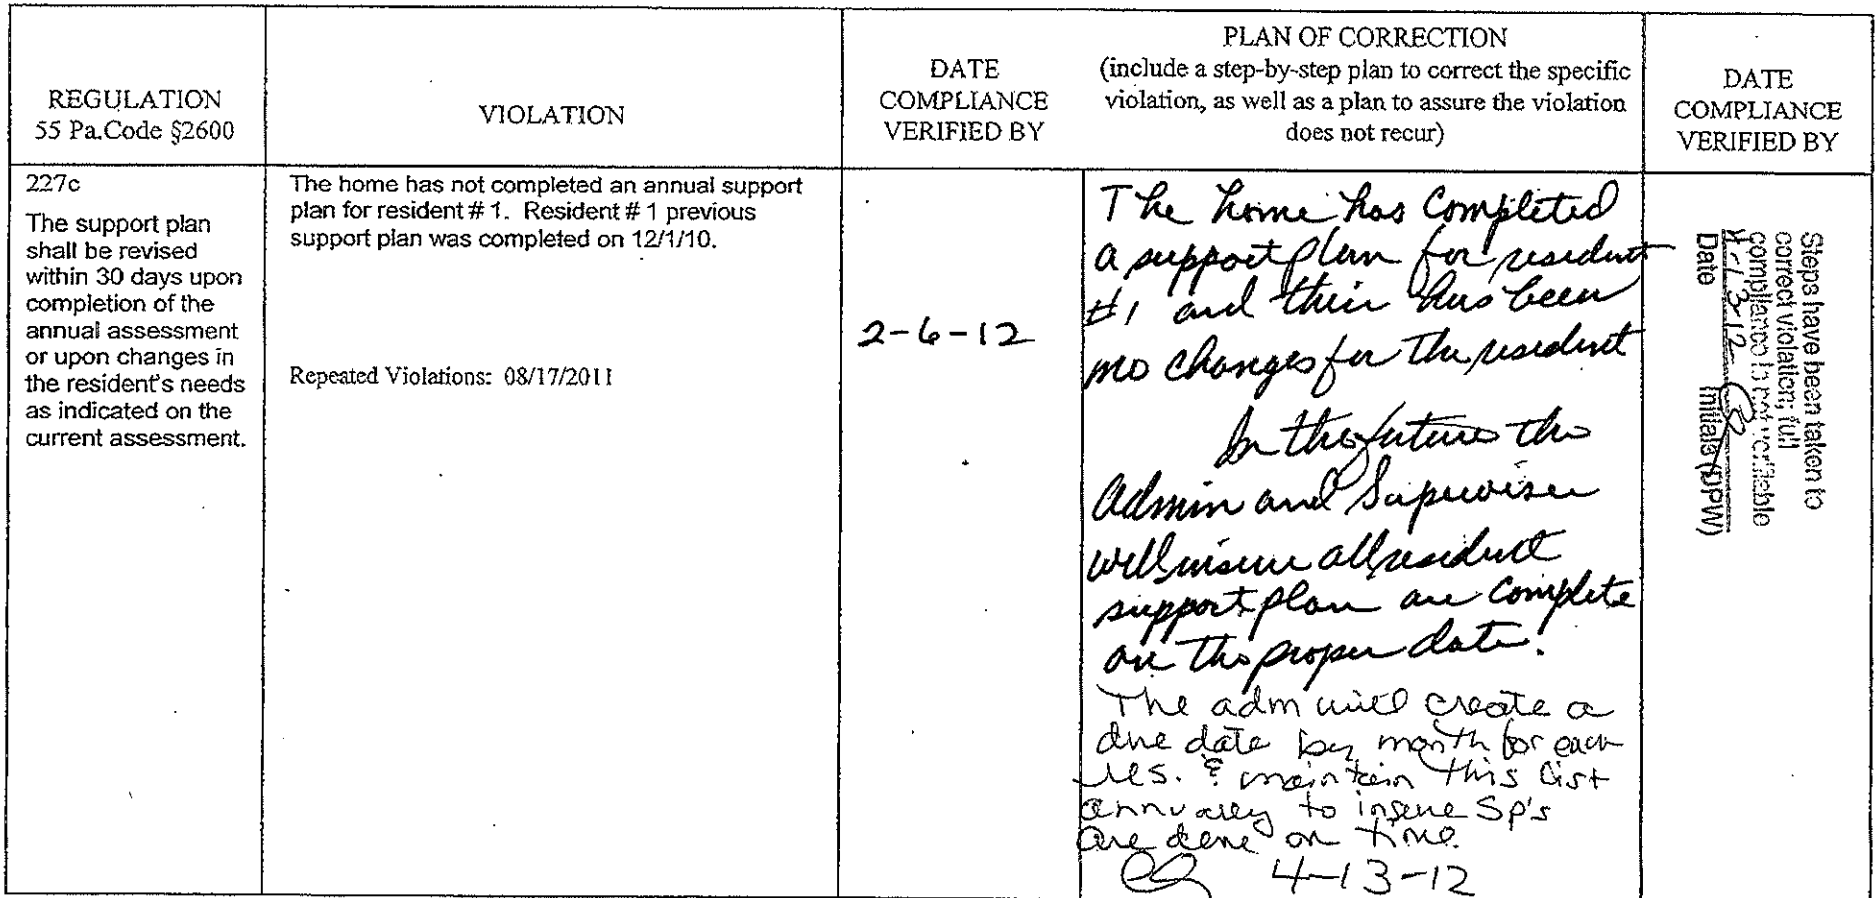 REGULATION
55 Pa.Code §2600
VIOLATION
DATE
COMPLIANCE
VERIFIED BY
PLAN OF CORRECTION
(include a step-by-step plan to correct the specific
violation, as well as a plan to assure the violation
does not recur)
DATE
COMPLIANCE
VERIFIED BY
227c
The support plan
shall be revised
within 30 days upon
completion of the
annual assessment
or upon changes in
the resident's needs
as indicated on the
current assessment.
The home has not completed an annual support
plan for resident # 1. Resident # 1 previous
support plan was completed on 12/1/10.
Repeated Violations: 08/17/2011
2-6-12
The home has completed
a support plan for resident
#1 and their has been
no changes for the resident
In the future the
Admin and Supervisor
will insure all resident
support plan are complete
on the proper date.
The adm will create a
due date by month for each
res. & maintain this list
annually to insure SP's
are done on time.
4-13-12
Steps have been taken to
correct violation; full
compliance is not verifiable
4-13-12
Date Initials (DPW)